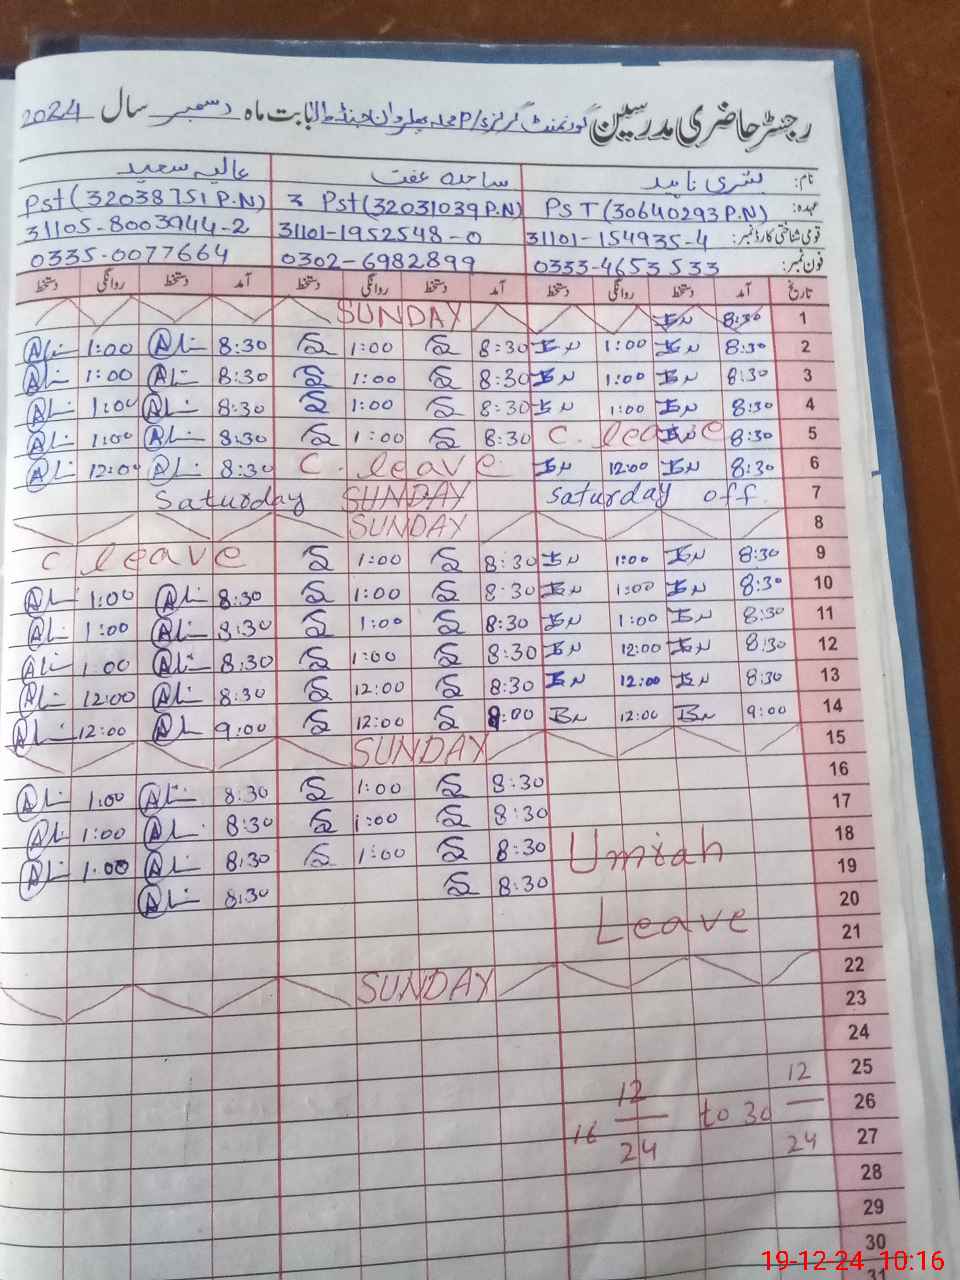 رجسٹر حاضری مدرسین گورنمنٹ گرلز بابت ماہ دسمبر سال 2024
نام: بشری ناہید ساجدہ عفت عالیہ سعید
عہدہ: PST (30640293 P.N) Pst (32031039 P.N) Pst (32038751 P.N)
قومی شناختی کارڈ نمبر: 31101-154935-4 31101-1952548-0 31105-8003944-2
فون نمبر: 0333-4653533 0302-6982899 0335-0077664
تاریخ آمد دستخط روانگی دستخط آمد دستخط روانگی دستخط آمد دستخط روانگی دستخط
1 8:30 SUNDAY
2 8:30 1:00 8:30 1:00 8:30 1:00
3 8:30 1:00 8:30 1:00 8:30 1:00
4 8:30 1:00 8:30 1:00 8:30 1:00
5 8:30 C. leave 8:30 1:00 8:30 1:00
6 8:30 12:00 C. leave 8:30 12:00
7 Saturday off SUNDAY Saturday
8 SUNDAY
9 8:30 1:00 8:30 1:00 C leave
10 8:30 1:00 8:30 1:00 8:30 1:00
11 8:30 1:00 8:30 1:00 8:30 1:00
12 8:30 12:00 8:30 1:00 8:30 1.00
13 8:30 12:00 8:30 12:00 8:30 12:00
14 9:00 12:00 9:00 12:00 9:00 12:00
15 SUNDAY
16 8:30 1:00 8:30 1:00
17 8:30 1:00 8:30 1:00
18 Umrah 8:30 1:00 8:30 1.00
19 8:30 8:30
20
21 Leave
22 SUNDAY
23
24
25
26 16 12/24 to 30 12/24
27
28
29
30
31
19-12-24 10:16